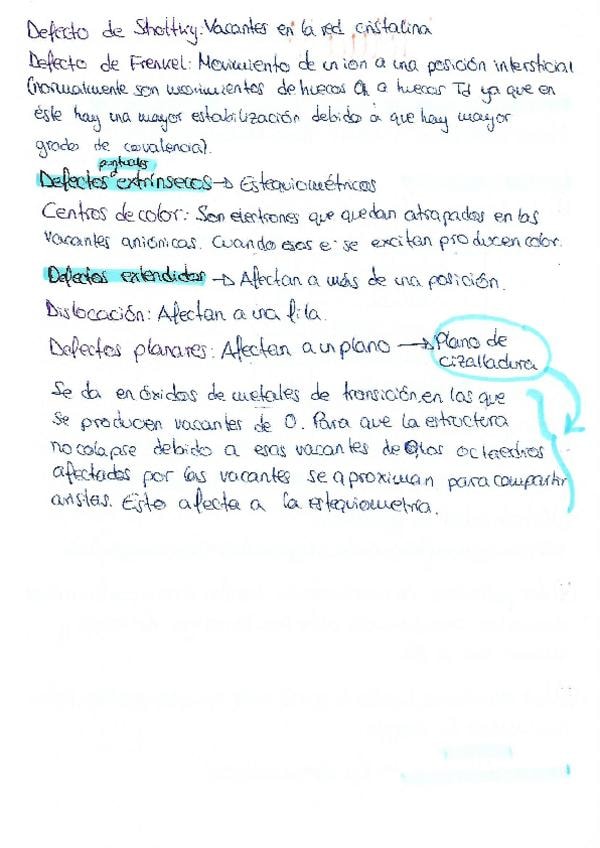 Defecto de Shottky: Vacantes en la red cristalina
Defecto de Frenkel: Movimiento de un ion a una posición intersticial
(normalmente son movimientos de huecos Oh a huecos Td ya que en
éste hay una mayor estabilización debido a que hay mayor
grado de covalencia).
puntuales
Defectos extrínsecos → Estequiométricos
Centros de color: Son electrones que quedan atrapados en las
vacantes aniónicas. Cuando esos e⁻ se excitan producen color.
Defectos extendidos → Afectan a más de una posición.
Dislocación: Afectan a una fila.
Defectos planares: Afectan a un plano → Plano de
cizalladura
Se da en óxidos de metales de transición, en las que
se producen vacantes de O. Para que la estructura
no colapse debido a esas vacantes de O los octaedros
afectados por las vacantes se aproximan para compartir
aristas. Esto afecta a la estequiometría.